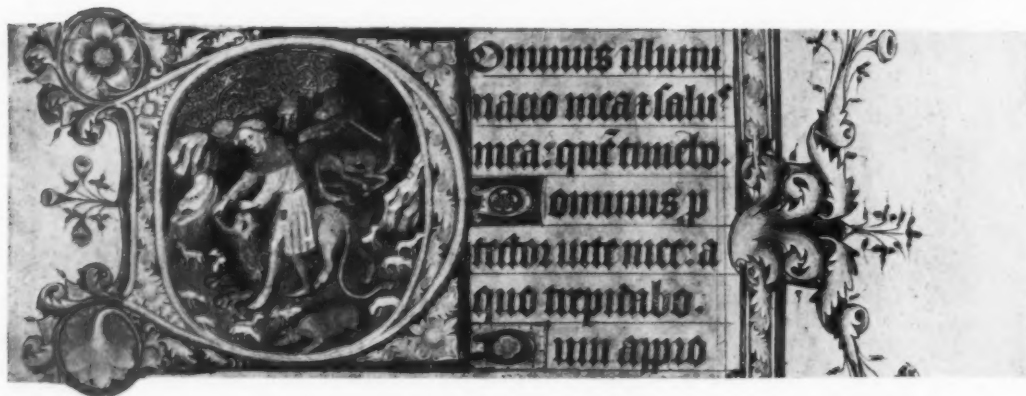 Ominus illumi
nacio mea et salus
mea: quē timebo.
Dominus p
tector vite mee: a
quo trepidabo.
Dum appro